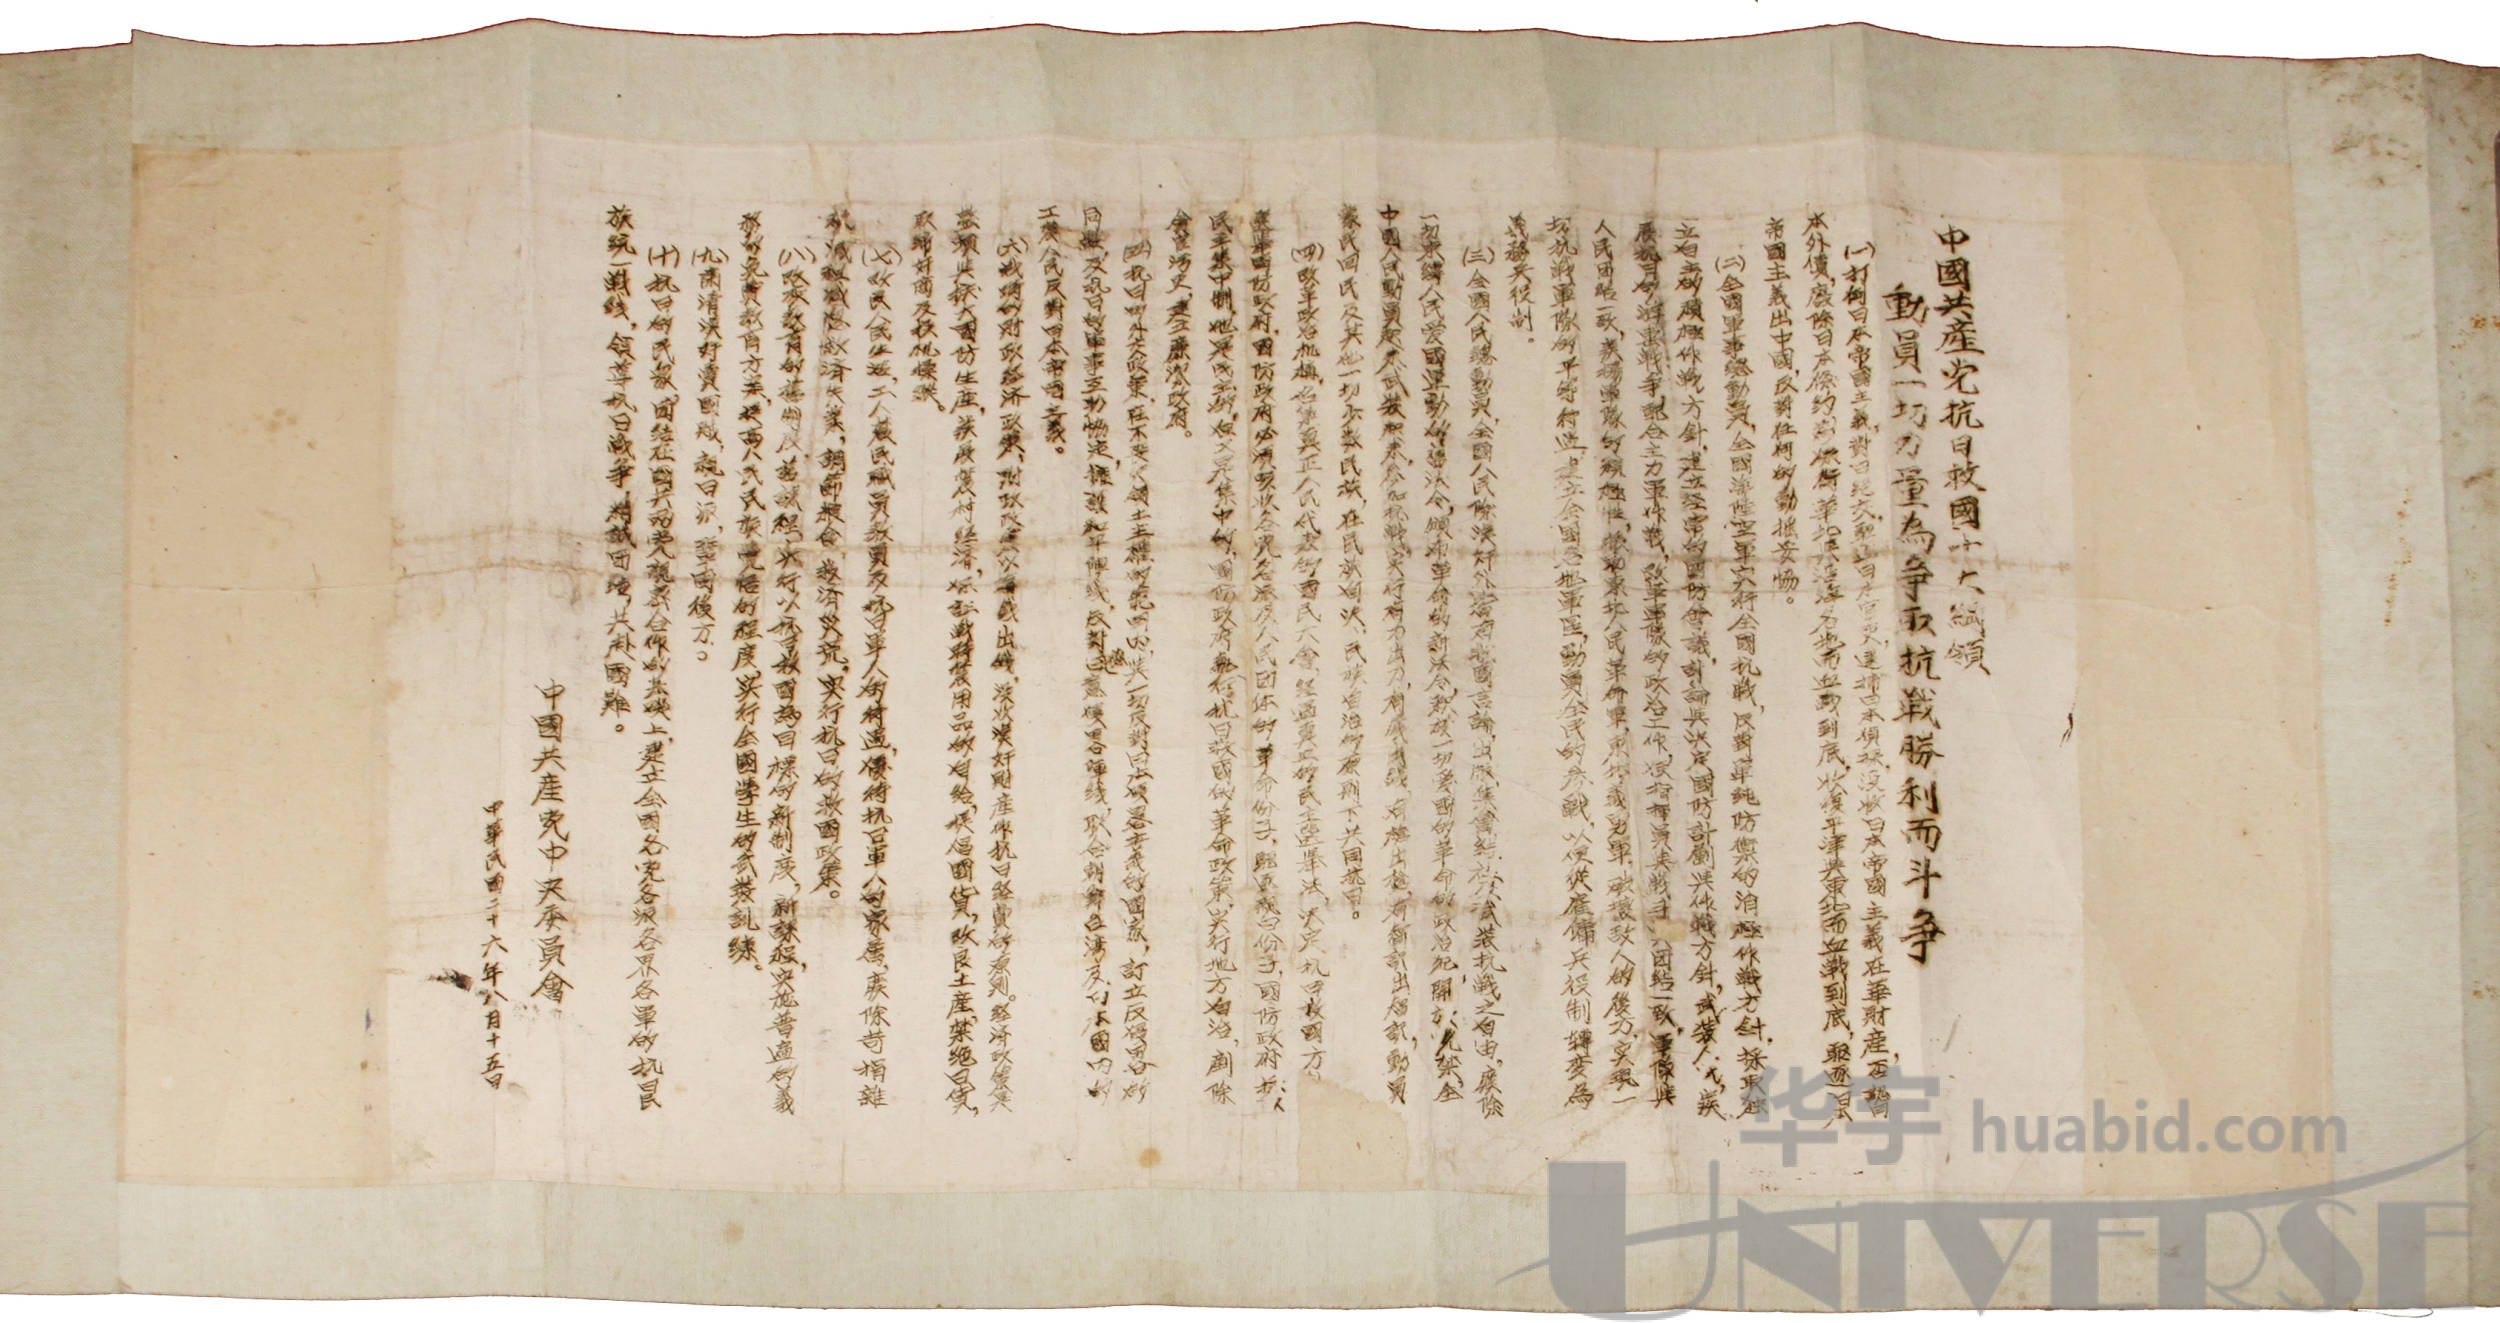 中國共産党抗日救國十大綱領
動員一切力量為争取抗戦勝利而斗争
(一)打倒日本帝國主義,對日絶交,駆逐日本官吏,逮捕日本偵探,没收日本帝國主義在華財産,否認
本外債,廃除日本條約,華北与沿海各地而血戦到底,收復平津与東北而血戦到底,駆逐日本
帝國主義出中國,反對任何的動揺妥協。
(二)全國軍事總動員,全國海陸空軍实行全國抗戦,反對单純防禦的消極作戦方針,採取独
立自主的積極作戦方針,建立経常的國防會議,討論與决定國防計劃與作戦方針,武装人民,発
展抗日的游擊戦争,配合主力軍作戦,改革軍隊的政治工作,使指揮員與戦斗員团結一致,軍隊與
人民团結一致,発揚軍隊的積極性,援助東北人民革命軍,東北義勇軍,破壊敌人的後方,实現一
切抗戦軍隊的平等待遇,建立全國各地軍區,動員全民的参戦,以便従雇傭兵役制轉変為
義務兵役制。
(三)全國人民總動員,全國人民除漢奸外,皆有救國言論,出版,集會,結社,武装抗戦之自由,廃除
一切束縛人民愛國運動的舊法令,頒布革命的新法令,釈放一切爱國的革命的政治犯,開放党禁,全
中國人民動員起来武装起来参加抗戦,实行有力出力,有銭出銭,有槍出槍,有知識出知識,動員
蒙民回民及其他一切少数民族,在民族自决,民族自治的原則下共同抗日。
(四)改革政治机構,召集真正人民代表的國民大會,経過真正的民主選举法,决定抗日救國方
國防政府,國防政府必須吸收各党各派及人民团体的革命份子,駆逐親日份子,國防政府
民主集中制,他是民主的,但又是集中的,國防政府执行抗日救國的革命政策,实行地方自治,剷除
貪官污吏,建立廉潔政府。
(五)抗日的外交政策,在不喪失領土主権的範囲内,與一切反對日本侵略主義的國家,訂立反侵畧的
同盟,及抗日的軍事互助協定,擁護和平陣线,反對徳日意侵畧陣线,联合朝鮮台湾及日本國内的
工農人民反對日本帝國主義。
(六)戦時的財政経済政策,財政政策以有銭出銭,没收漢奸財産作抗日経費的原則。経済政策是
整頓與拡大國防生産,発展農村経済,保証戦時農用品的自給,提倡國貨,改良土産,禁絶日貨,
取締奸商及投机操縦。
(七)改良人民生活,工人農民職員教員及抗日軍人的待遇,優待抗日軍人的家属,廃除苛捐雜
税,减租减息,救済失業,調節粮食,救済災荒,实行抗日的救國政策。
(八)改変教育的舊制度,舊課程,实行以抗日救國為目標的新制度,新課程,实施普遍的義
務的免費教育方案,提高人民民族覚悟的程度,实行全國学生的武装訓練。
(九)肃清漢奸賣國賊,親日派,鞏固後方。
(十)抗日的民族团結,在國共两党親密合作的基礎上,建立全國各党各派各界各軍的抗日民
族統一戦线,領導抗日戦争,精誠团結,共赴國難。
中國共産党中央委員會
中華民國二十六年八月十五日
华宇 huabid.com
UNIVERSE